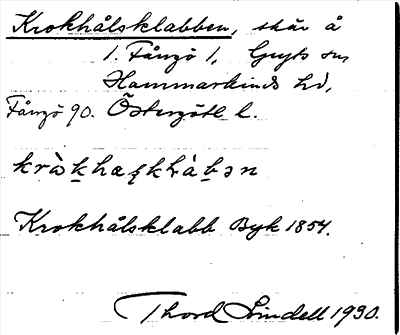 Krokhålsklabben, skär å
1. Fångö 1, Gryts sn
Hammarkinds hd,
Fångö 90. Östergötl. l.
Krokhålsklabb Byk 1854.
Thord Lindell 1930.